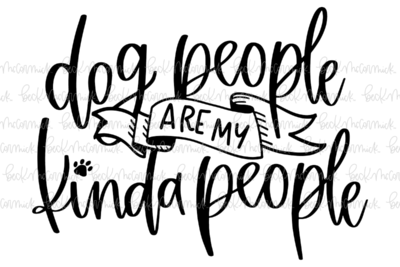 dog people
ARE MY
kinda people